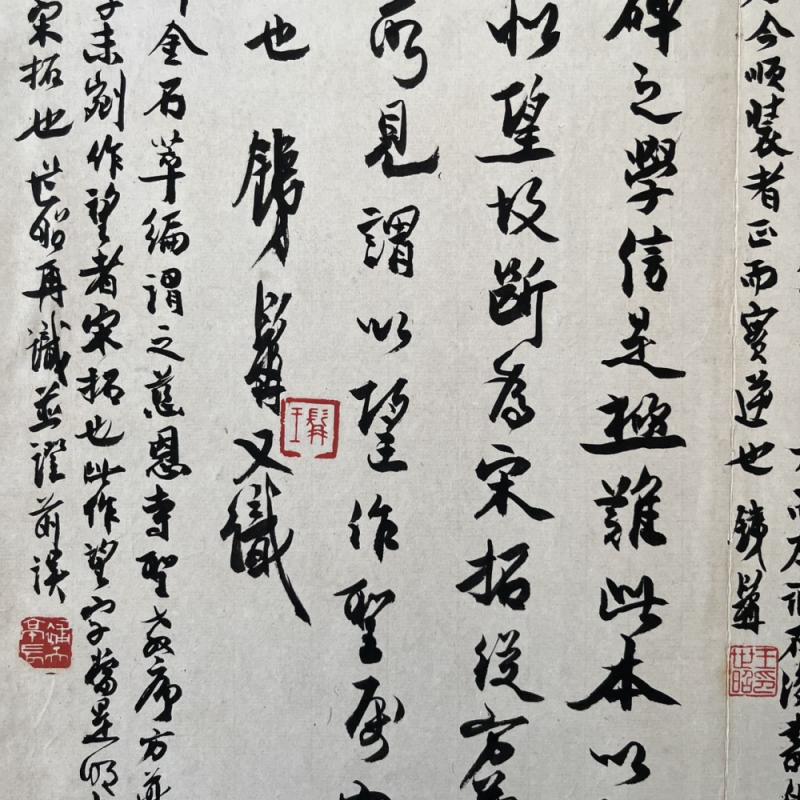 今順裝者正而實逆也 銕髯
碑之學信是極難此本以
似望故斷為宋拓從方
所見謂以望作聖
也 銕髯又識
金石萃編謂之慈恩寺聖教序方
未剜作望者宋拓也此作望字當是明
宋拓也 世昭再識並證前誤